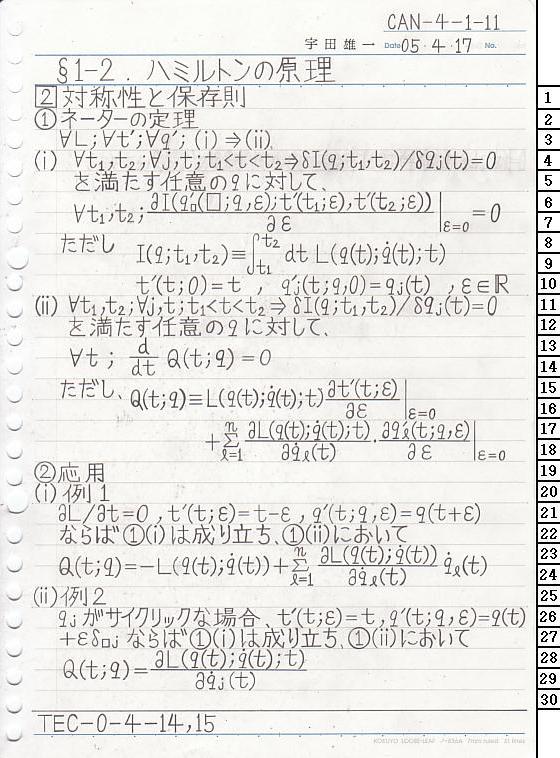 CAN-4-1-11
宇田雄一 Date 05・4・17 No.
§1-2. ハミルトンの原理
2 対称性と保存則
①ネーターの定理
∀L;∀t′;∀q′; (i)⇒(ii)
(i) ∀t₁,t₂;∀j,t;t₁<t<t₂⇒δI(q;t₁,t₂)/δqⱼ(t)=0
を満たす任意のqに対して、
∀t₁,t₂; ∂I(q′₀(□;q,ε);t′(t₁;ε),t′(t₂;ε))/∂ε|ε=0 =0
ただし I(q;t₁,t₂)≡∫t₁t₂ dt L(q(t);q̇(t);t)
t′(t;0)=t , q′ⱼ(t;q,0)=qⱼ(t) , ε∈ℝ
(ii) ∀t₁,t₂;∀j,t;t₁<t<t₂⇒δI(q;t₁,t₂)/δqⱼ(t)=0
を満たす任意のqに対して、
∀t; d/dt Q(t;q)=0
ただし、Q(t;q)≡L(q(t);q̇(t);t)∂t′(t;ε)/∂ε|ε=0
+Σℓ=1n ∂L(q(t);q̇(t);t)/∂q̇ℓ(t)・∂q′ℓ(t;q,ε)/∂ε|ε=0
②応用
(i)例1
∂L/∂t=0, t′(t;ε)=t-ε, q′(t;q,ε)=q(t+ε)
ならば①(i)は成り立ち、①(ii)において
Q(t;q)=-L(q(t);q̇(t))+Σℓ=1n ∂L(q(t);q̇(t))/∂q̇ℓ(t) q̇ℓ(t)
(ii)例2
qⱼがサイクリックな場合、t′(t;ε)=t, q′(t;q,ε)=q(t)
+εδ□ⱼならば①(i)は成り立ち、①(ii)において
Q(t;q)=∂L(q(t);q̇(t);t)/∂q̇ⱼ(t)
TEC-0-4-14,15
KOKUYO LOOSE-LEAF ノ-836A 7mm ruled 31 lines
1
2
3
4
5
6
7
8
9
10
11
12
13
14
15
16
17
18
19
20
21
22
23
24
25
26
27
28
29
30